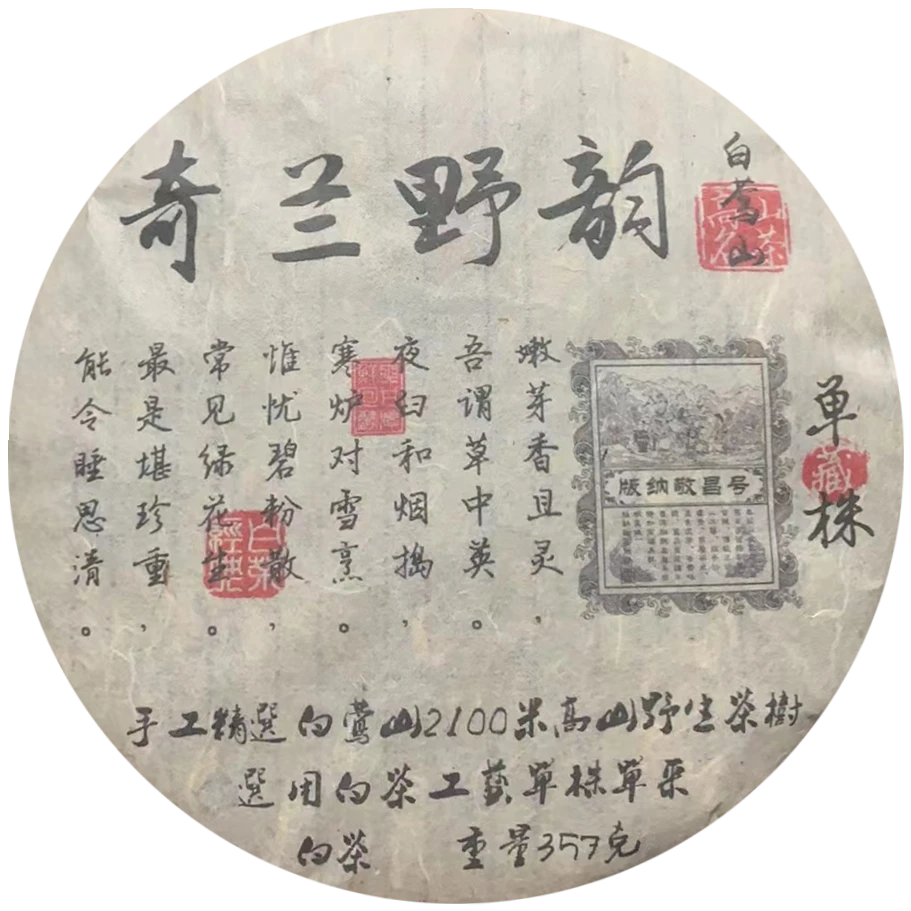 奇兰野韵
白莺山
单株
藏
嫩芽香且灵，
吾谓草中英。
夜臼和烟捣，
寒炉对雪烹。
惟忧碧粉散，
常见绿花生。
最是堪珍重，
能令睡思清。
版纳敬昌号
白茶
經典
手工精選白鶯山2100米高山野生茶樹
選用白茶工藝單株單采
白茶 重量357克